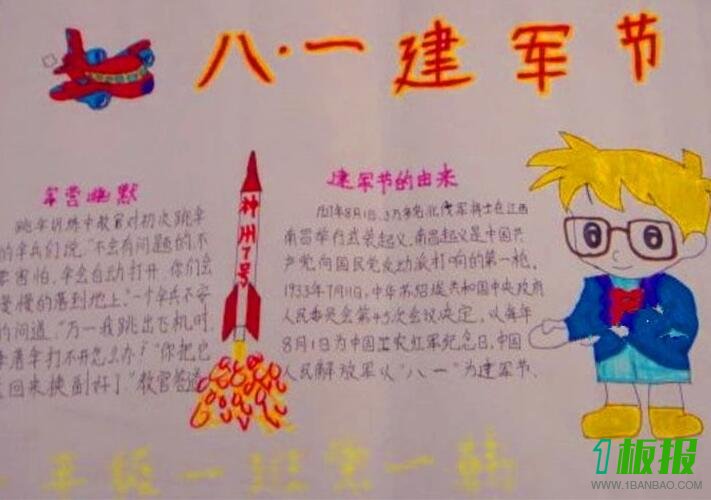 八·一建军节
军营幽默
跳伞训练中教官对初次跳伞
的伞兵们说,"不会有问题的,不
要害怕,伞会自动打开,你们会
慢慢的落到地上."一个伞兵不安
的问道,"万一我跳出飞机时,
降落伞打不开怎么办?""你把它
回来换副好了."教官答道
神州7号
建军节的由来
1927年8月1日,3万余名北伐军将士在江西
南昌举行武装起义,南昌起义是中国共
产党向国民党反动派打响的第一枪。
1933年7月11日,中华苏维埃共和国中央政府
人民委员会第45次会议决定,以每年
8月1为中国工农红军纪念日,中国
人民解放军以"八一"为建军节、
年级一班第一
1板报
WWW.1BANBAO.COM